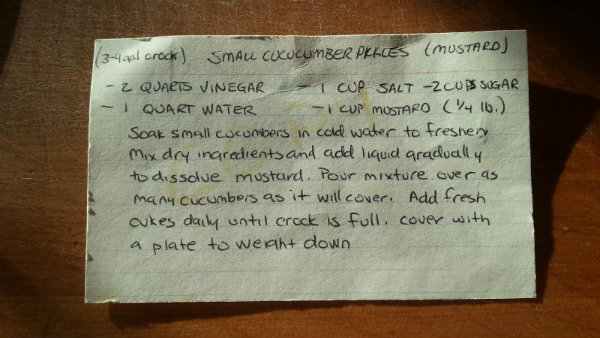 (3-4 gal crock) SMALL CUCUCUMBER PICKLES (MUSTARD)
- 2 QUARTS VINEGAR - 1 CUP SALT - 2 CUPS SUGAR
- 1 QUART WATER - 1 CUP MUSTARD (1/4 lb.)
Soak small cucumbers in cold water to freshen
Mix dry ingredients and add liquid gradually
to dissolve mustard. Pour mixture over as
many cucumbers as it will cover. Add fresh
cukes daily until crock is full. cover with
a plate to weight down